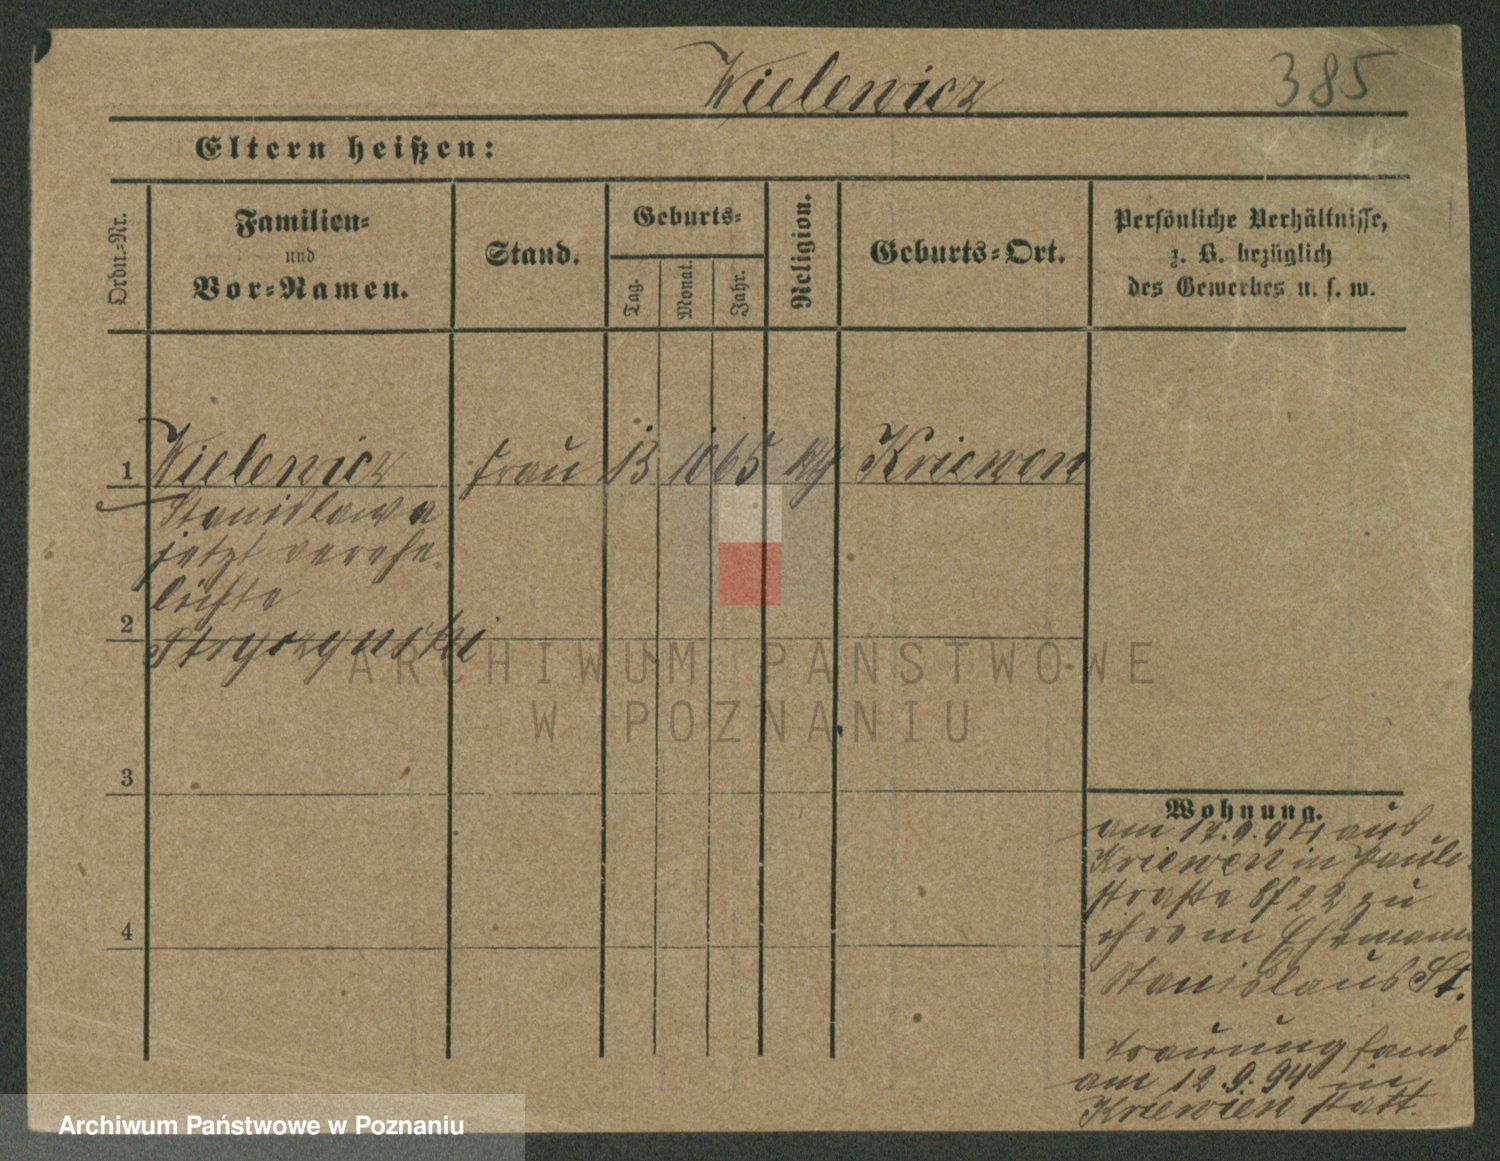 Wielewicz
385
Eltern heißen:
Ordn.-Nr.
Familien-
und
Vor-Namen.
Stand.
Geburts-
Tag.
Monat.
Jahr.
Religion.
Geburts-Ort.
Persönliche Verhältnisse,
z. B. bezüglich
des Gewerbes u. s. w.
1 Wielewicz frau 13 10 65 kth Kriewen
Stanislawa
jetzt verehe-
lichte
2
Stryczynski
3
4
Wohnung.
am 17.9.94 aus
Kriewen in Pauli
straße 22 zu
ihrem Ehemann
Stanislaus St.
Trauung fand
am 12.9.94 in
Kriewen statt.
ARCHIWUM PAŃSTWOWE
W POZNANIU
Archiwum Państwowe w Poznaniu